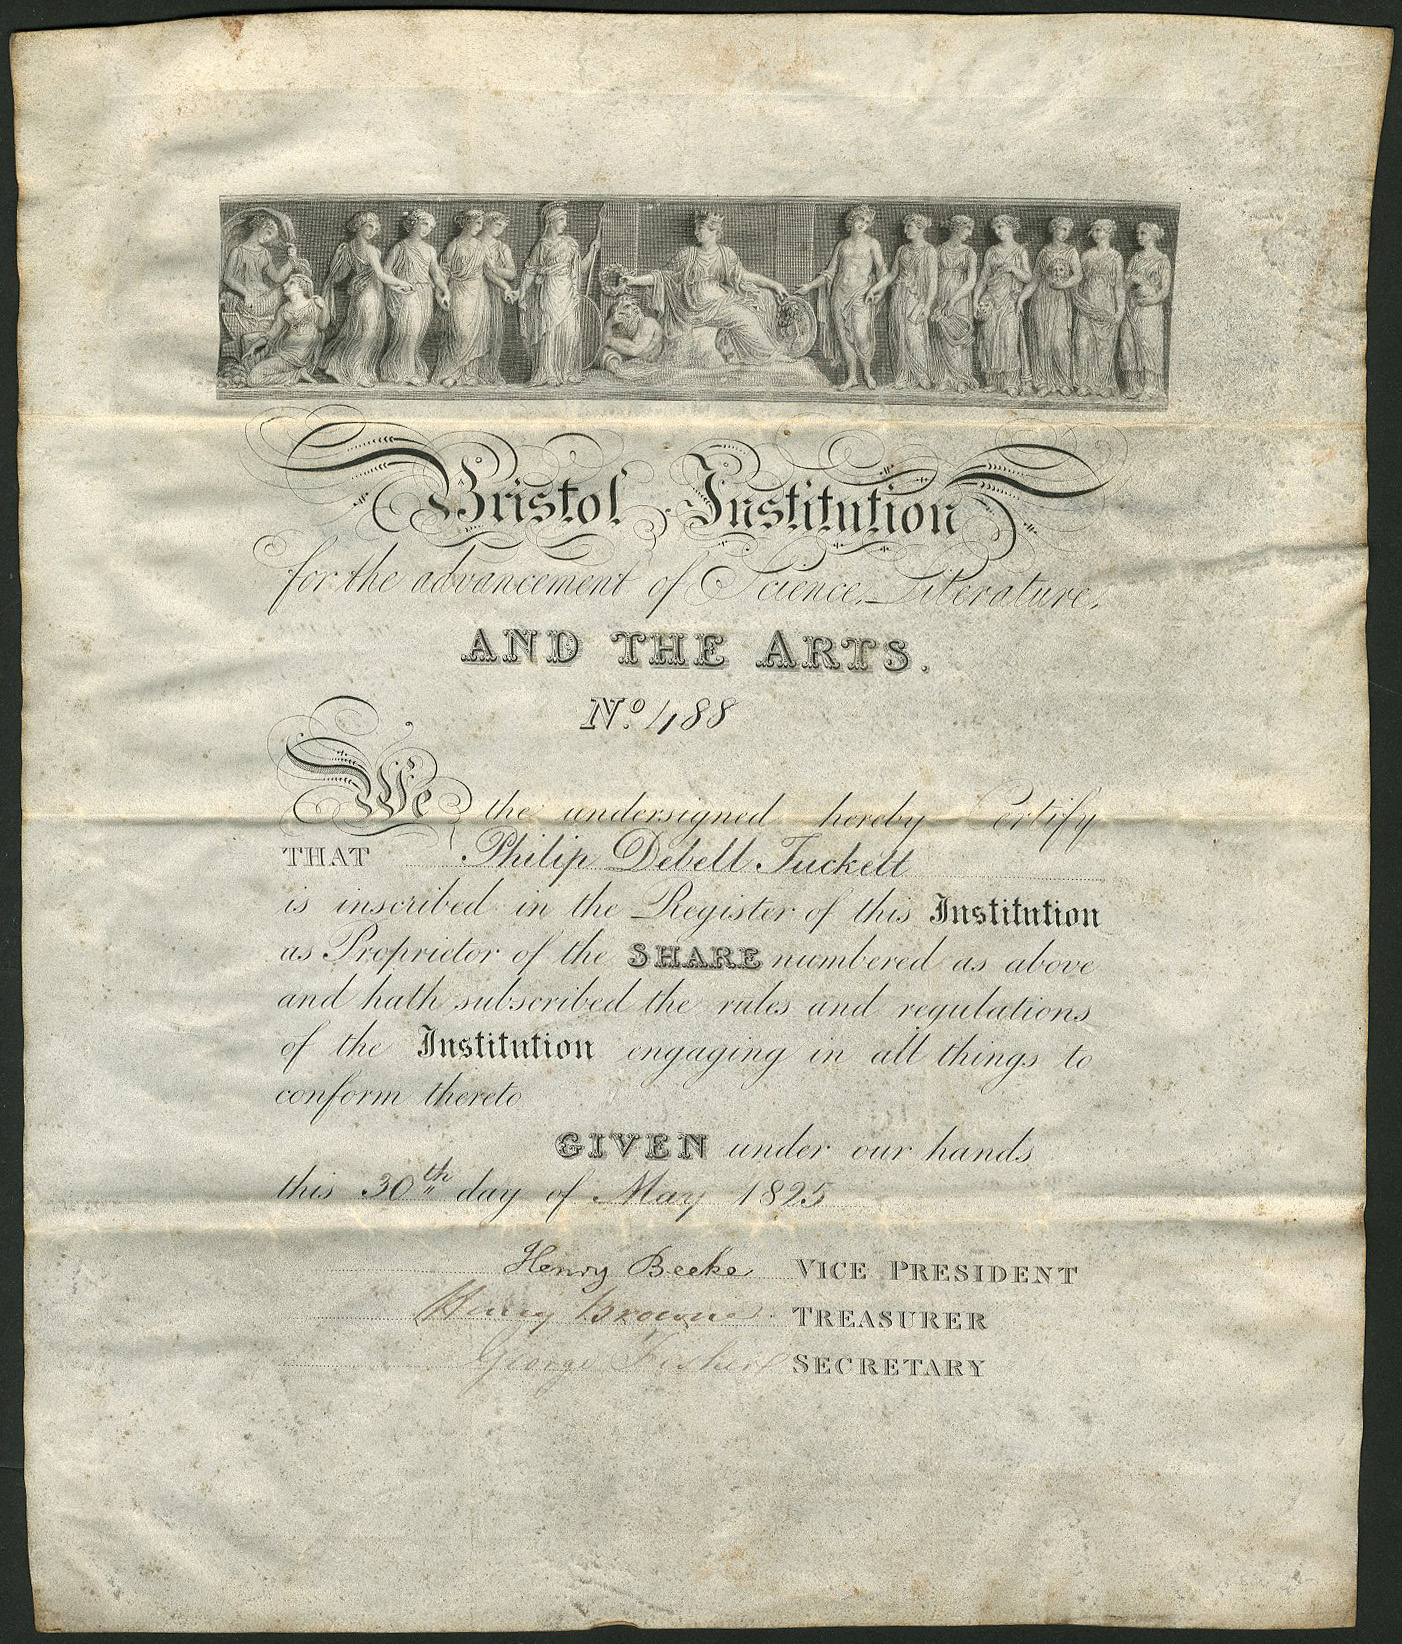 Bristol Institution
for the advancement of Science, Literature,
AND THE ARTS.
No. 488
We the undersigned hereby Certify
THAT Philip Debell Tuckett
is inscribed in the Register of this Institution
as Proprietor of the SHARE numbered as above
and hath subscribed the rules and regulations
of the Institution engaging in all things to
conform thereto
GIVEN under our hands
this 30th day of May 1825
Henry Beeke VICE PRESIDENT
Henry Browne TREASURER
George SECRETARY